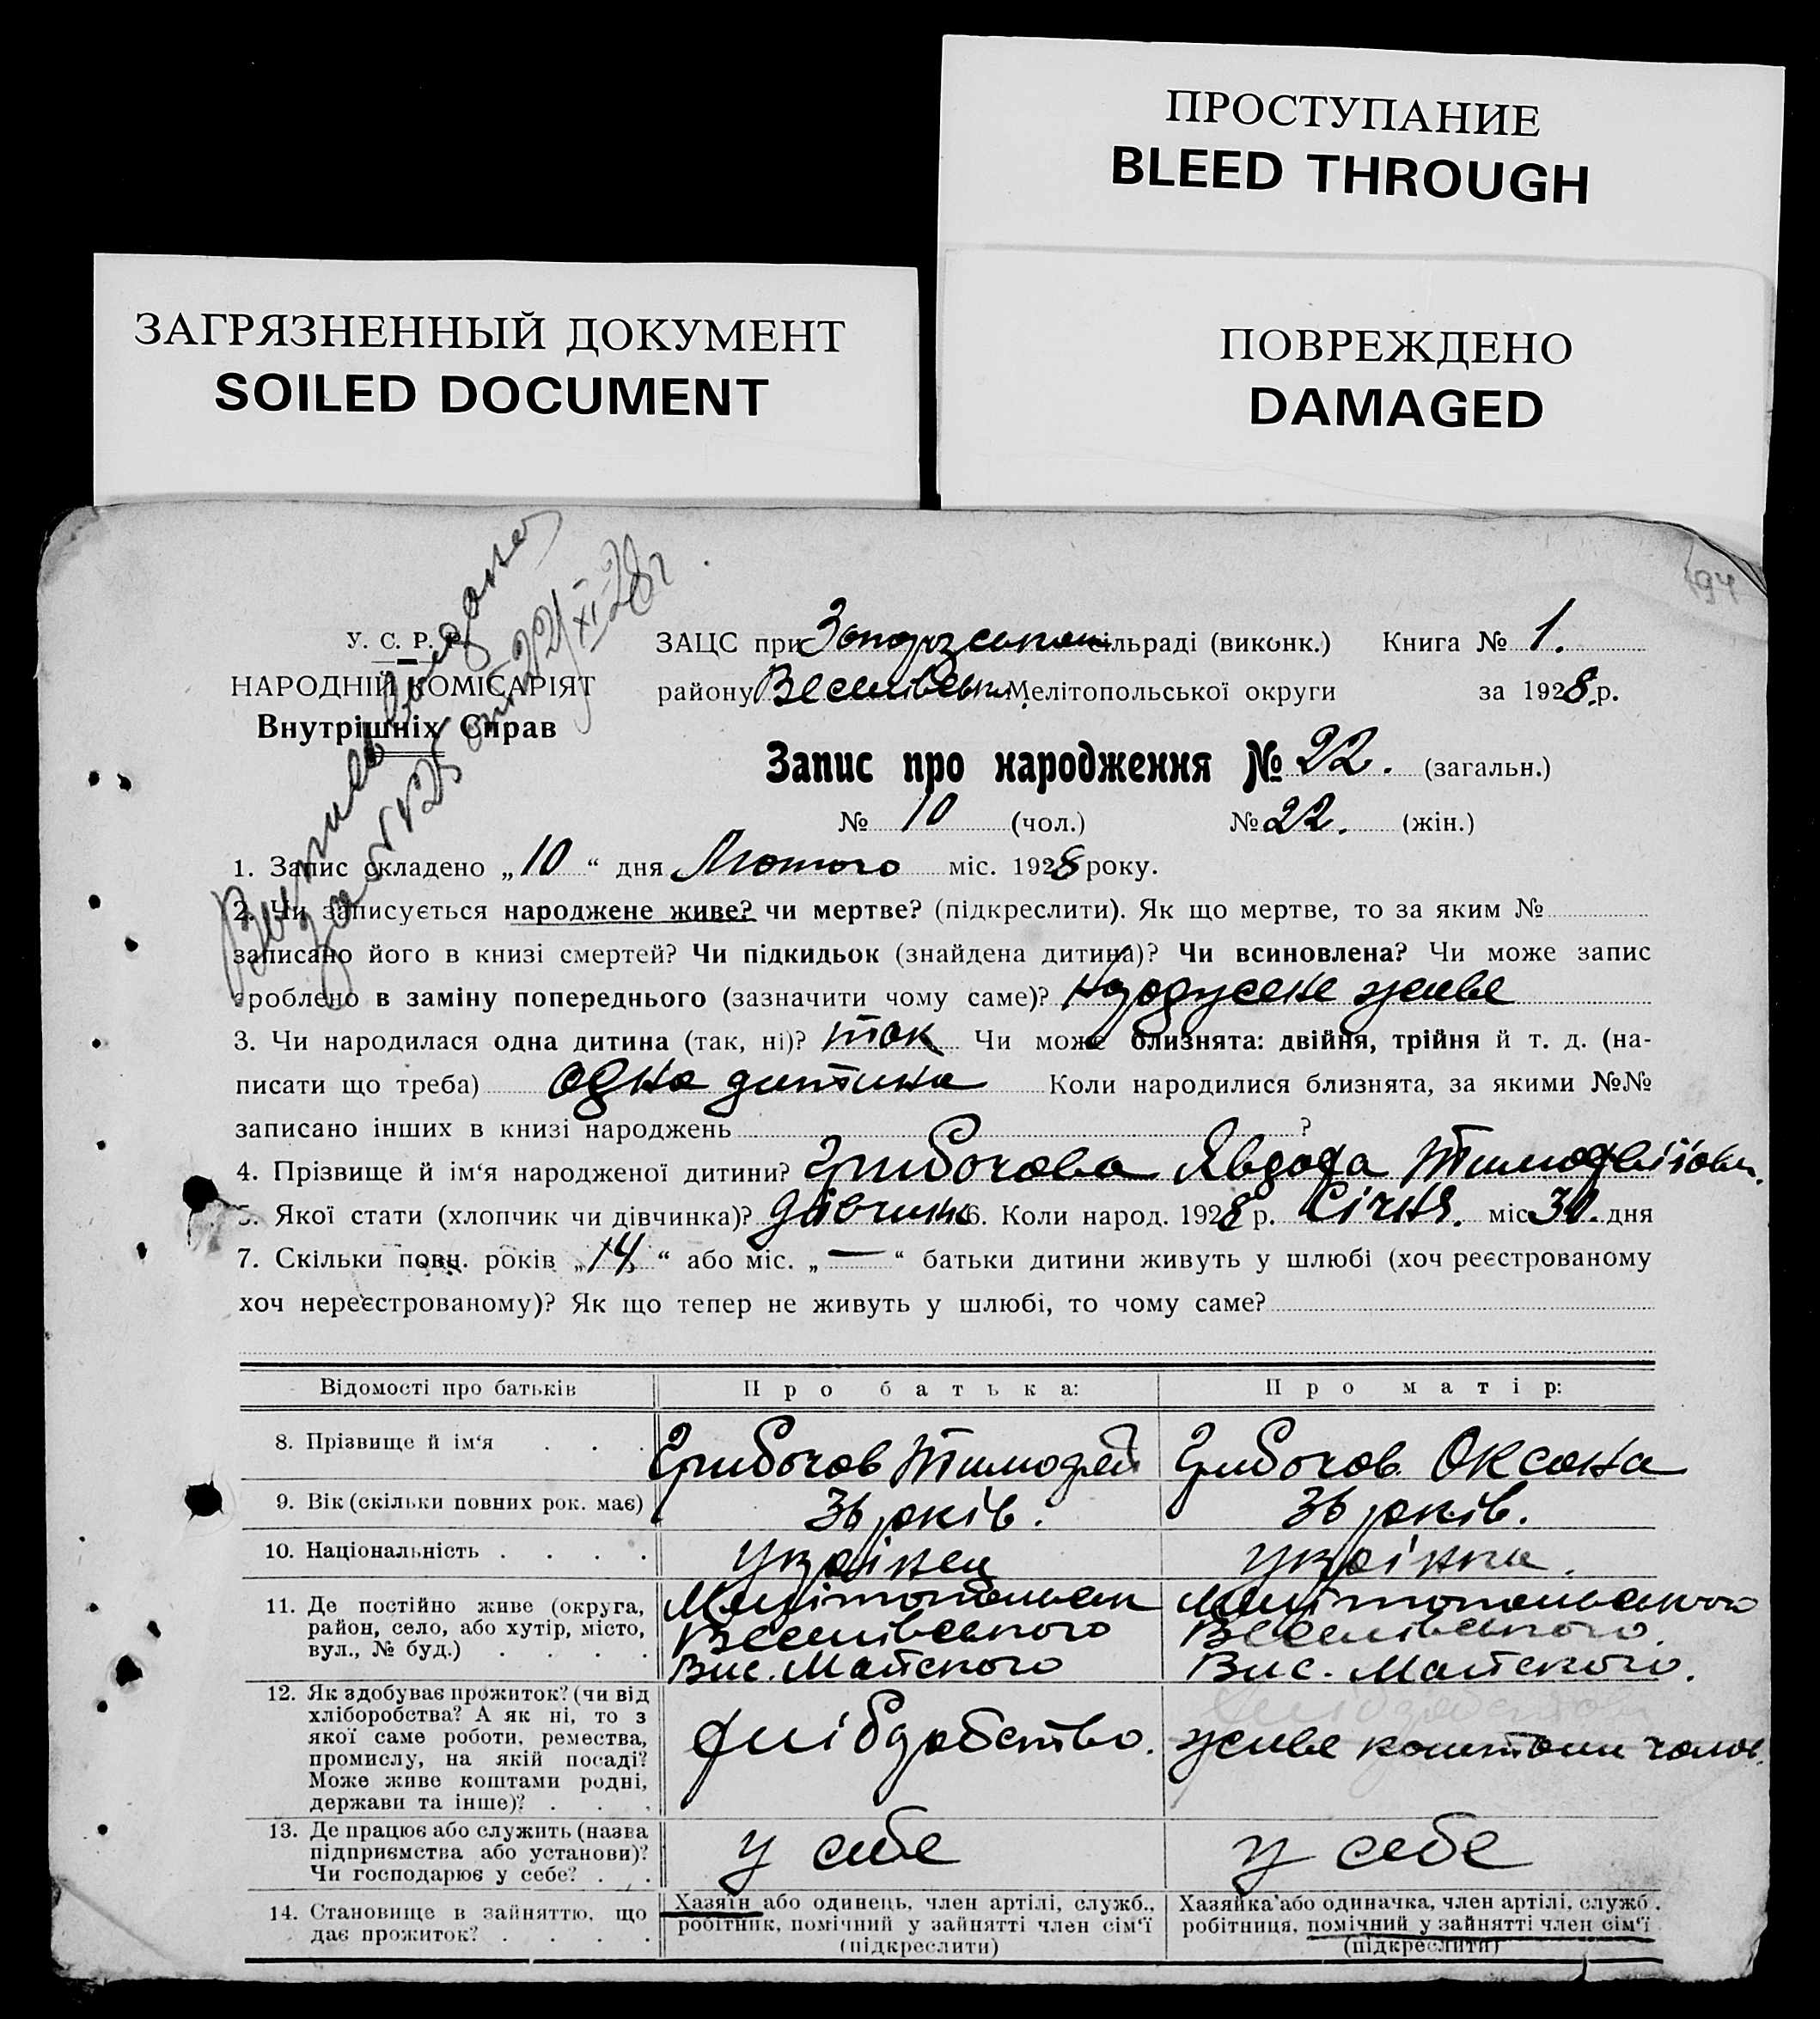 ПРОСТУПАНИЕ
BLEED THROUGH
ЗАГРЯЗНЕННЫЙ ДОКУМЕНТ
SOILED DOCUMENT
ПОВРЕЖДЕНО
DAMAGED
194
Витяг видано
за № 425 от 22/XI-28 г.
У. С. Р. Р.
НАРОДНІЙ КОМІСАРІЯТ
Внутрішніх Справ
ЗАЦС при Запорзськой сільраді (виконк.) Книга № 1.
району Веселівськ. Мелітопольської округи за 1928 р.
Запис про народження № 22. (загальн.)
№ 10 (чол.) № 22. (жін.)
1. Запис складено „10“ дня Лютого міс. 1928 року.
2. Чи записується народжене живе? чи мертве? (підкреслити). Як що мертве, то за яким №
записано його в книзі смертей? Чи підкидьок (знайдена дитина)? Чи всиновлена? Чи може запис
зроблено в заміну попереднього (зазначити чому саме)? народжене живе
3. Чи народилася одна дитина (так, ні)? так Чи може близнята: двійня, трійня й т. д. (на-
писати що треба) одна дитина Коли народилися близнята, за якими №№
записано інших в книзі народжень ?
4. Прізвище й ім‘я народженої дитини? Грибочова Явдоха Тимофеїовн.
5. Якої стати (хлопчик чи дівчинка)? дівчинк 6. Коли народ. 1928 р. Січня. міс 30. дня
7. Скільки повн. років „14“ або міс. „—“ батьки дитини живуть у шлюбі (хоч реєстрованому
хоч нереєстрованому)? Як що тепер не живуть у шлюбі, то чому саме?
Відомості про батьків Про батька: Про матір:
8. Прізвище й ім‘я . . . Грибочов Тимофей Грибочов Оксана
9. Вік (скільки повних рок. має) 36 років. 36 років.
10. Національність . . . . українец українка.
11. Де постійно живе (округа,
район, село, або хутір, місто,
вул., № буд.) . . . .
Мелітопольськ
Веселівського
Вис. Майского
Мелітопольського
Веселівського.
Вис. Майского.
12. Як здобуває прожиток? (чи від
хліборобства? А як ні, то з
якої саме роботи, ремества,
промислу, на якій посаді?
Може живе коштами родні,
держави та інше)? . . .
хліборобство.
живе коштами чолов.
13. Де працює або служить (назва
підприємства або установи)?
Чи господарює у себе? . .
у себе
у себе
14. Становище в зайняттю, що
дає прожиток? . . . .
Хазяїн або одинець, член артілі, служб.,
робітник, помічний у зайнятті член сім‘ї
(підкреслити)
Хазяйка або одиначка, член артілі, служб.
робітниця, помічний у зайнятті член сім‘ї
(підкреслити)